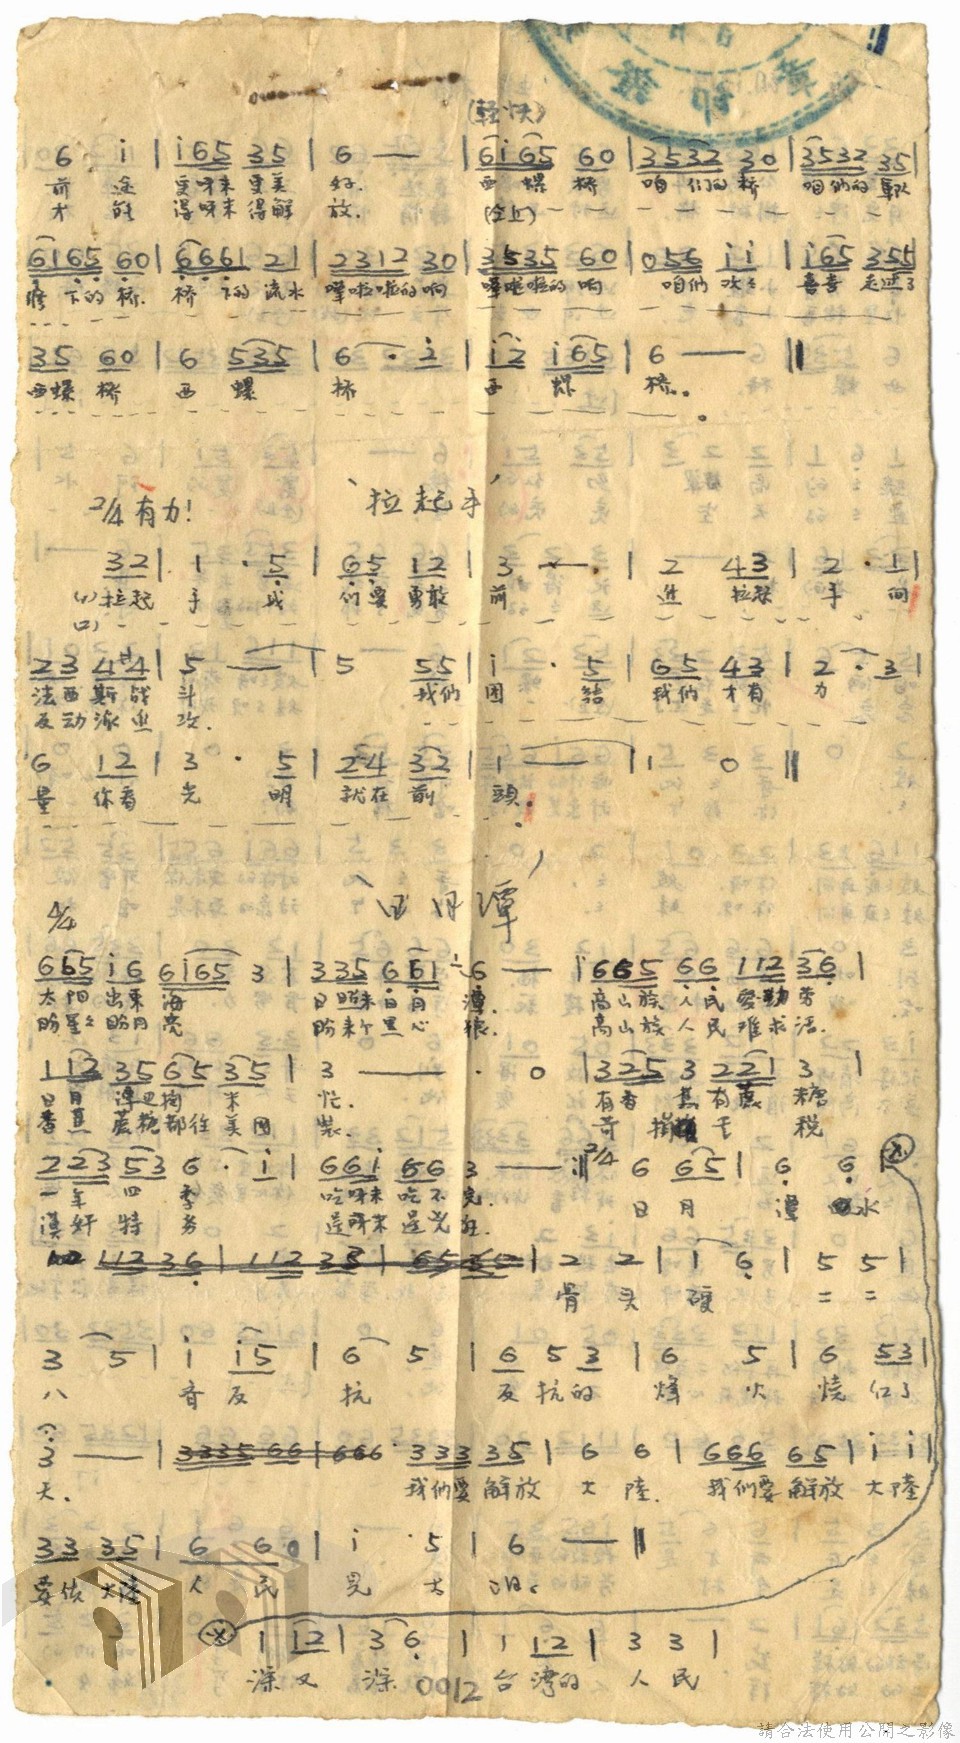 (輕快)
6 i | i65 35 | 6 — | 6i65 60 | 3532 30 | 3532 35 |
前 途 更呀来 更美 好. 西 螺 桥 咱 们的 桥 咱们的 軍队
才 能 得呀来 得解 放. (仝上)
6165 60 | 6661 21 | 2312 30 | 3535 60 | 056 i i | i65 355 |
下的 桥. 桥 下的 流水 嘩啦啦的 响 嘩啦啦的 响 咱們 欢欢 喜喜 走过了
35 60 | 6 535 | 6 · i | i2 i65 | 6 — ||
西螺 桥 西 螺 桥 西 螺 桥.
2/4 有力! 「拉起手」
32 | 1 · 5 | 65 12 | 3 — · | 2 43 | 2 · 1 |
(1) 拉起 手 我 们要 勇敢 前 進 拉起 手 向
(2)
23 4#4 | 5 — | 5 55 | i · 5 | 65 43 | 2 · 3 |
法西 斯战 斗 我们 团 结 我们 才有 力
反动派 進 攻.
6 12 | 3 · 5 | 24 32 | 1 — | 1 0 ||
量 你看 光 明 就在 前 頭.
4/4 「日月潭」
665 i6 6i65 3 | 335 661 6 — | 6665 66 112 36 |
太阳 出東 海 日照来日月 潭. 高山族 人民 勤劳
盼星星 盼月 亮 盼来个黑心 狼. 高山族 人民 难求活.
112 35 65 35 | 3 — · 0 | 325 3 221 3 |
日月 潭边 米 忙. 有香 蕉 有蔗 糖
香蕉 蔗糖 都往 美国 裝. 苛 捐 干 税
223 53 6 · i | 66i 66 3 — :|| 2/4 6 65 | 6 6 |
一年 四 季 吃呀来 吃不 完. 日 月 潭 水
漢奸 特 务 逞呀来 逞兇 狂.
2 2 | 1 6 | 5 5 |
骨 头 硬 二 二
3 5 | i i5 | 6 5 | 6 5 3 | 6 5 | 6 53 |
八 音 反 抗 反 抗的 烽 火 烧 红了
3 — | 333 35 | 6 6 | 666 65 | i i |
天. 我們要 解放 大 陸. 我們要 解放 大 陸
33 35 | 6 60 | i 5 | 6 — ||
要使 大陸 人 民 見 太 阳.
1 12 | 3 6 | 1 12 | 3 3 |
深 又 深 台 湾的 人 民
0012
請合法使用公開之影像